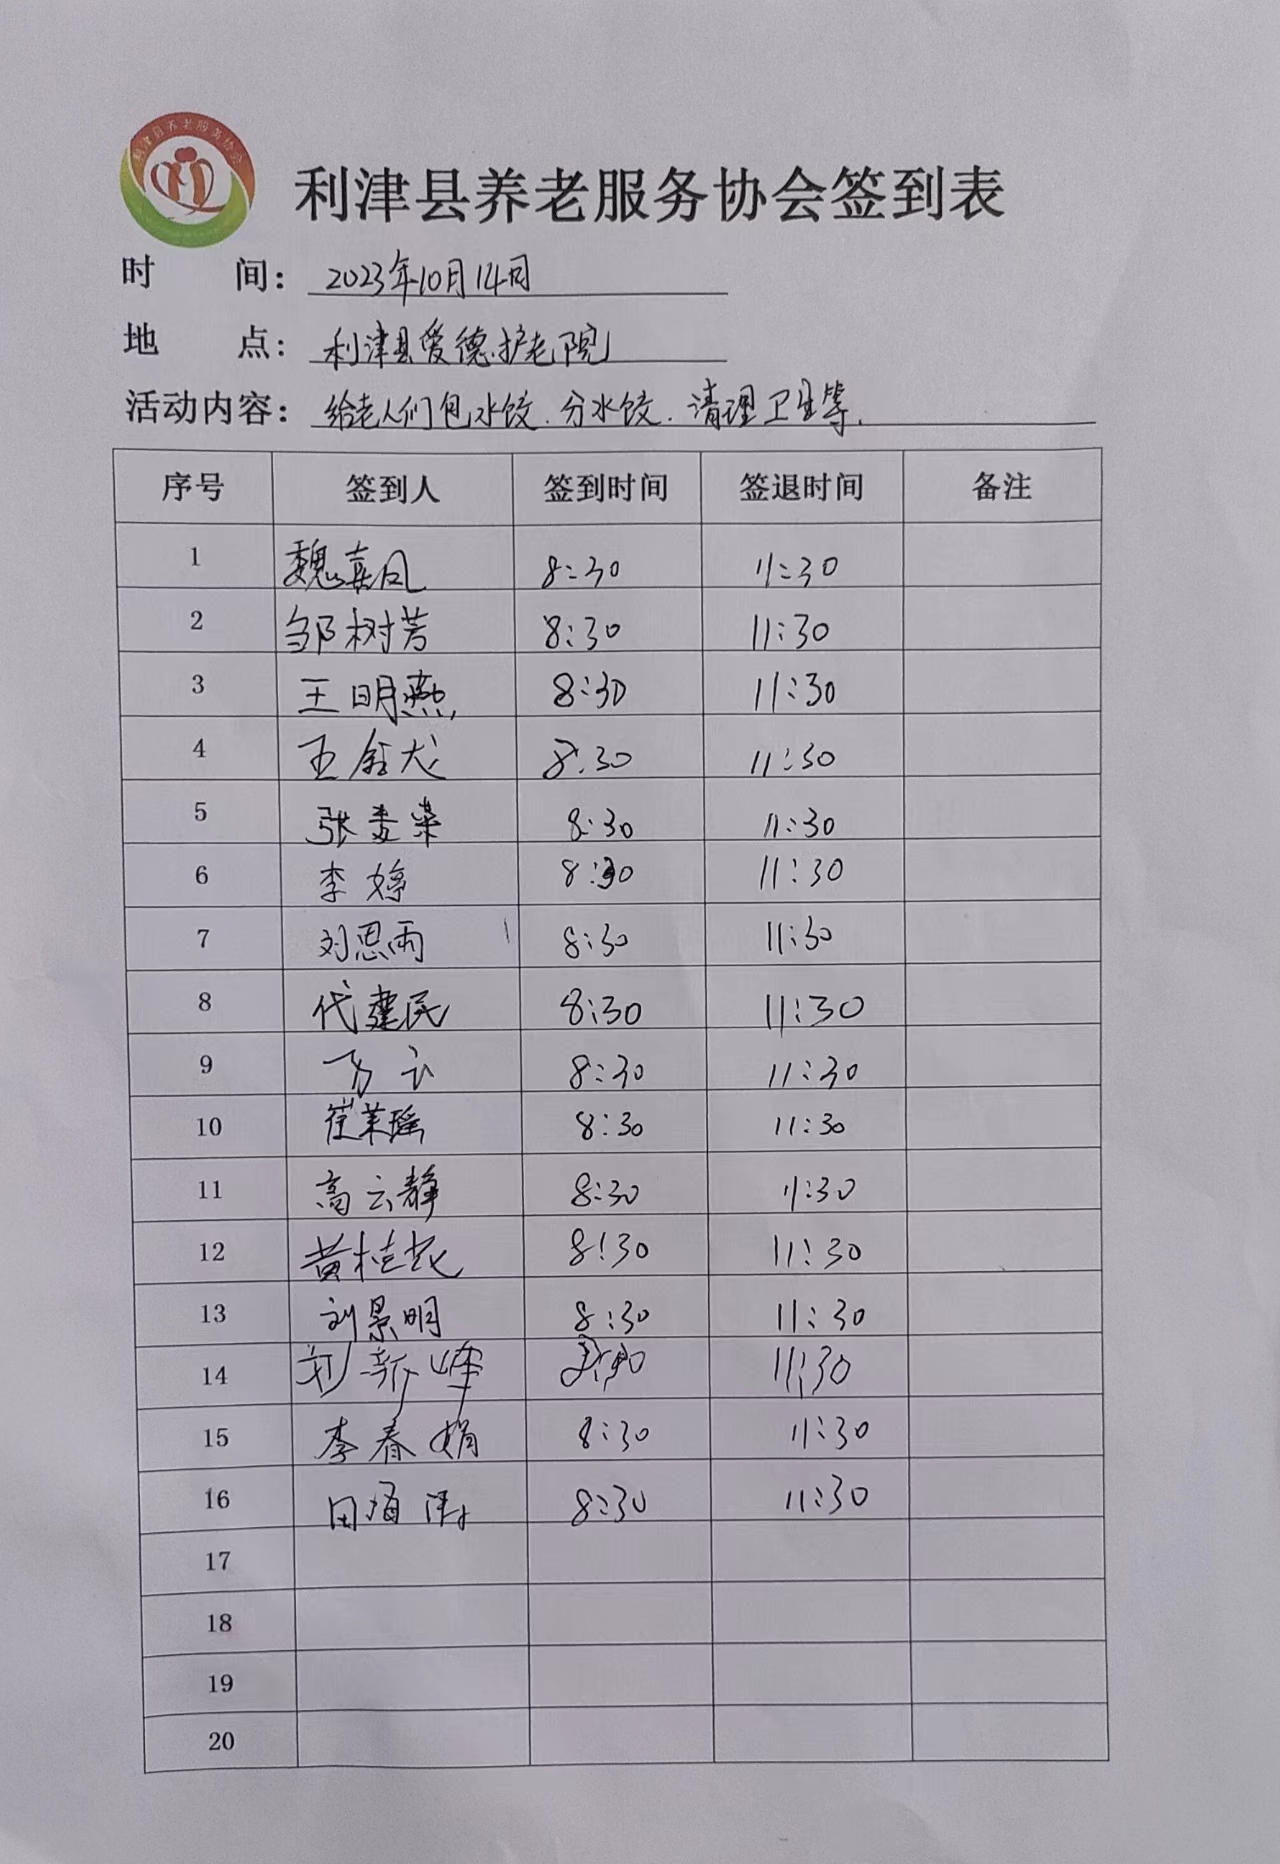 利津县养老服务协会
利津县养老服务协会签到表
时 间： 2023年10月14日
地 点： 利津县爱德护老院
活动内容： 给老人们包水饺.分水饺.清理卫生等.
序号 签到人 签到时间 签退时间 备注
1 魏嘉风 8:30 11:30
2 邹树芳 8:30 11:30
3 王明燕 8:30 11:30
4 王 8:30 11:30
5 张 荣 8:30 11:30
6 李婷 8:30 11:30
7 刘思雨 8:30 11:30
8 代建民 8:30 11:30
9 8:30 11:30
10 崔莱瑶 8:30 11:30
11 高云静 8:30 11:30
12 黄桂花 8:30 11:30
13 刘景明 8:30 11:30
14 刘新峰 8:30 11:30
15 李春娟 8:30 11:30
16 田海涛 8:30 11:30
17
18
19
20